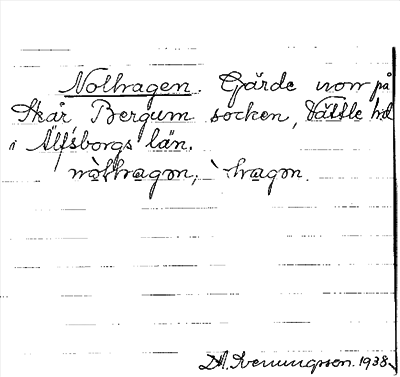 Nolhagen. Gärde norr på
Skår Bergum socken, Vättle hd
i Älfsborgs län.
nòlhagɷn, hagɷn.
D.A. Svenungsson. 1938.